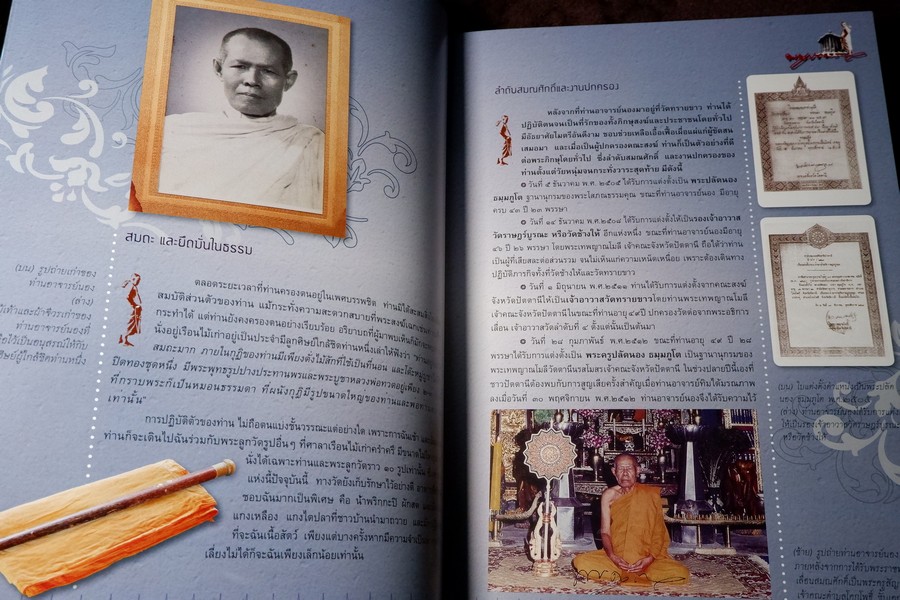 สมถะ และยึดมั่นในธรรม
(บน) รูปถ่ายเก่าของ
ท่านอาจารย์นอง
(ล่าง)
ไม้เท้าและผ้าจีวรเก่าของ
ท่านอาจารย์นองที่
ตลอดระยะเวลาที่ท่านครองตนอยู่ในเพศบรรพชิต ท่านมิได้สะสม
สมบัติส่วนตัวของท่าน แม้กระทั่งความสะดวกสบายที่พระสงฆ์
กระทำได้ แต่ท่านยังคงครองตนอย่างเรียบร้อย อริยาบถที่ผู้มาพบเห็นก็มักจะ
นั่งอยู่เรือนไม้เก่าอยู่เป็นประจำมีลูกศิษย์ใกล้ชิดท่านหนึ่งเล่าให้ฟังว่า
สมถะมาก ภายในกุฏิของท่านมีเพียงตั่งไม้สักที่ใช้เป็นที่นอน และ
ปิดทองชุดหนึ่ง มีพระพุทธรูปปางประทานพรและพระบูชาหลวงพ่อทวดอยู่เพียง
ที่กราบพระก็เป็นหมอนธรรมดา ที่ผนังกุฏิมีรูปขนาดใหญ่ของท่านและพ่อท่าน
เท่านั้น"
การปฏิบัติตัวของท่าน ไม่ถือตนแบ่งชั้นวรรณะแต่อย่างใด เพราะการฉันเช้า
ท่านก็จะเดินไปฉันร่วมกับพระลูกวัดรูปอื่นๆ ที่ศาลาเรือนไม้เก่าคร่ำคร่า มีขนาด
นั่งได้เฉพาะท่านและพระลูกวัดราว ๑๐ รูปเท่านั้น
แห่งนี้ปัจจุบันนี้ ทางวัดยังเก็บรักษาไว้อย่างดี
ชอบฉันมากเป็นพิเศษ คือ น้ำพริกกะปิ ผักสด
แกงเหลือง แกงไตปลาที่ชาวบ้านนำมาถวาย และ
ที่จะฉันเนื้อสัตว์ เพียงแต่บางครั้งหากมีความจำเป็น
เลี่ยงไม่ได้ก็จะฉันเพียงเล็กน้อยเท่านั้น
ลำดับสมณศักดิ์และงานปกครอง
หลังจากที่ท่านอาจารย์นองมาอยู่ที่วัดทรายขาว ท่านได้
ปฏิบัติตนจนเป็นที่รักของทั้งภิกษุสงฆ์และประชาชนโดยทั่วไป
มีอัธยาศัยไมตรีอันดีงาม ชอบช่วยเหลือเอื้อเฟื้อเผื่อแผ่แก่ผู้ขัดสน
เสมอมา และเมื่อเป็นผู้ปกครองคณะสงฆ์ ท่านก็เป็นตัวอย่างที่ดี
ต่อพระภิกษุโดยทั่วไป ซึ่งลำดับสมณศักดิ์ และงานปกครองของ
ท่านตั้งแต่วัยหนุ่มจนกระทั่งวาระสุดท้าย มีดังนี้
วันที่ ๕ ธันวาคม พ.ศ. ๒๕๐๕ ได้รับการแต่งตั้งเป็น พระปลัดนอง
ธมฺมภูโต ฐานานุกรมของพระโสภณธรรมคุณ ขณะที่ท่านอาจารย์นอง มีอายุ
ครบ ๔๓ ปี ๒๓ พรรษา
วันที่ ๑๔ ธันวาคม พ.ศ.๒๕๐๘ ได้รับการแต่งตั้งให้เป็นรองเจ้าอาวาส
วัดราษฎร์บูรณะ หรือวัดช้างให้ อีกแห่งหนึ่ง ขณะที่ท่านอาจารย์นองมีอายุ
๔๖ ปี ๒๖ พรรษา โดยพระเทพญาณโมลี เจ้าคณะจังหวัดปัตตานี ถือได้ว่าท่าน
เป็นผู้ที่เสียสละต่อส่วนรวม จนไม่เห็นแก่ความเหนื่อยเหนื่อย เพราะต้องเดินทาง
ปฏิบัติภารกิจทั้งที่วัดช้างให้และวัดทรายขาว
วันที่ ๑ มิถุนายน พ.ศ.๒๕๑๑ ท่านได้รับการแต่งตั้งจากคณะสงฆ์
จังหวัดปัตตานีให้เป็นเจ้าอาวาสวัดทรายขาวโดยท่านพระเทพญาณโมลี
เจ้าคณะจังหวัดปัตตานีในขณะที่ท่านอายุ ๔๙ปี ปกครองวัดต่อจากพระอธิการ
เลื่อน เจ้าอาวาสวัดลำดับที่ ๔ ตั้งแต่นั้นเป็นต้นมา
วันที่ ๒๘ กุมภาพันธ์ พ.ศ.๒๕๑๒ ขณะที่ท่านอายุ ๔๙ ปี ๒๘
พรรษาได้รับการแต่งตั้งเป็น พระครูปลัดนอง ธมฺมภูโต เป็นฐานานุกรมของ
พระเทพญาณโมลีวัดตานีนรสโมสรเจ้าคณะจังหวัดปัตตานี ในช่วงปลายปีนี้เองที่
ชาวปัตตานีต้องพบกับการสูญเสียครั้งสำคัญเมื่อท่านอาจารย์ทิมได้มรณภาพ
ลงเมื่อวันที่ ๓๐ พฤศจิกายน พ.ศ.๒๕๑๒ ท่านอาจารย์นองจึงได้รับความไว้
(บน) ใบแต่งตั้งตำแหน่งเป็นพระปลัด
นอง ธมฺมภูโต พ.ศ.๒๕๐๕
(ล่าง) ท่านอาจารย์นองได้รับการแต่งตั้ง
ให้เป็นรองเจ้าอาวาสวัดราษฎร์บูรณะ
หรือวัดช้างให้
(ซ้าย) รูปถ่ายท่านอาจารย์นอง
ภายหลังจากการได้รับพระราช
เลื่อนสมณศักดิ์เป็นพระครูสัญ